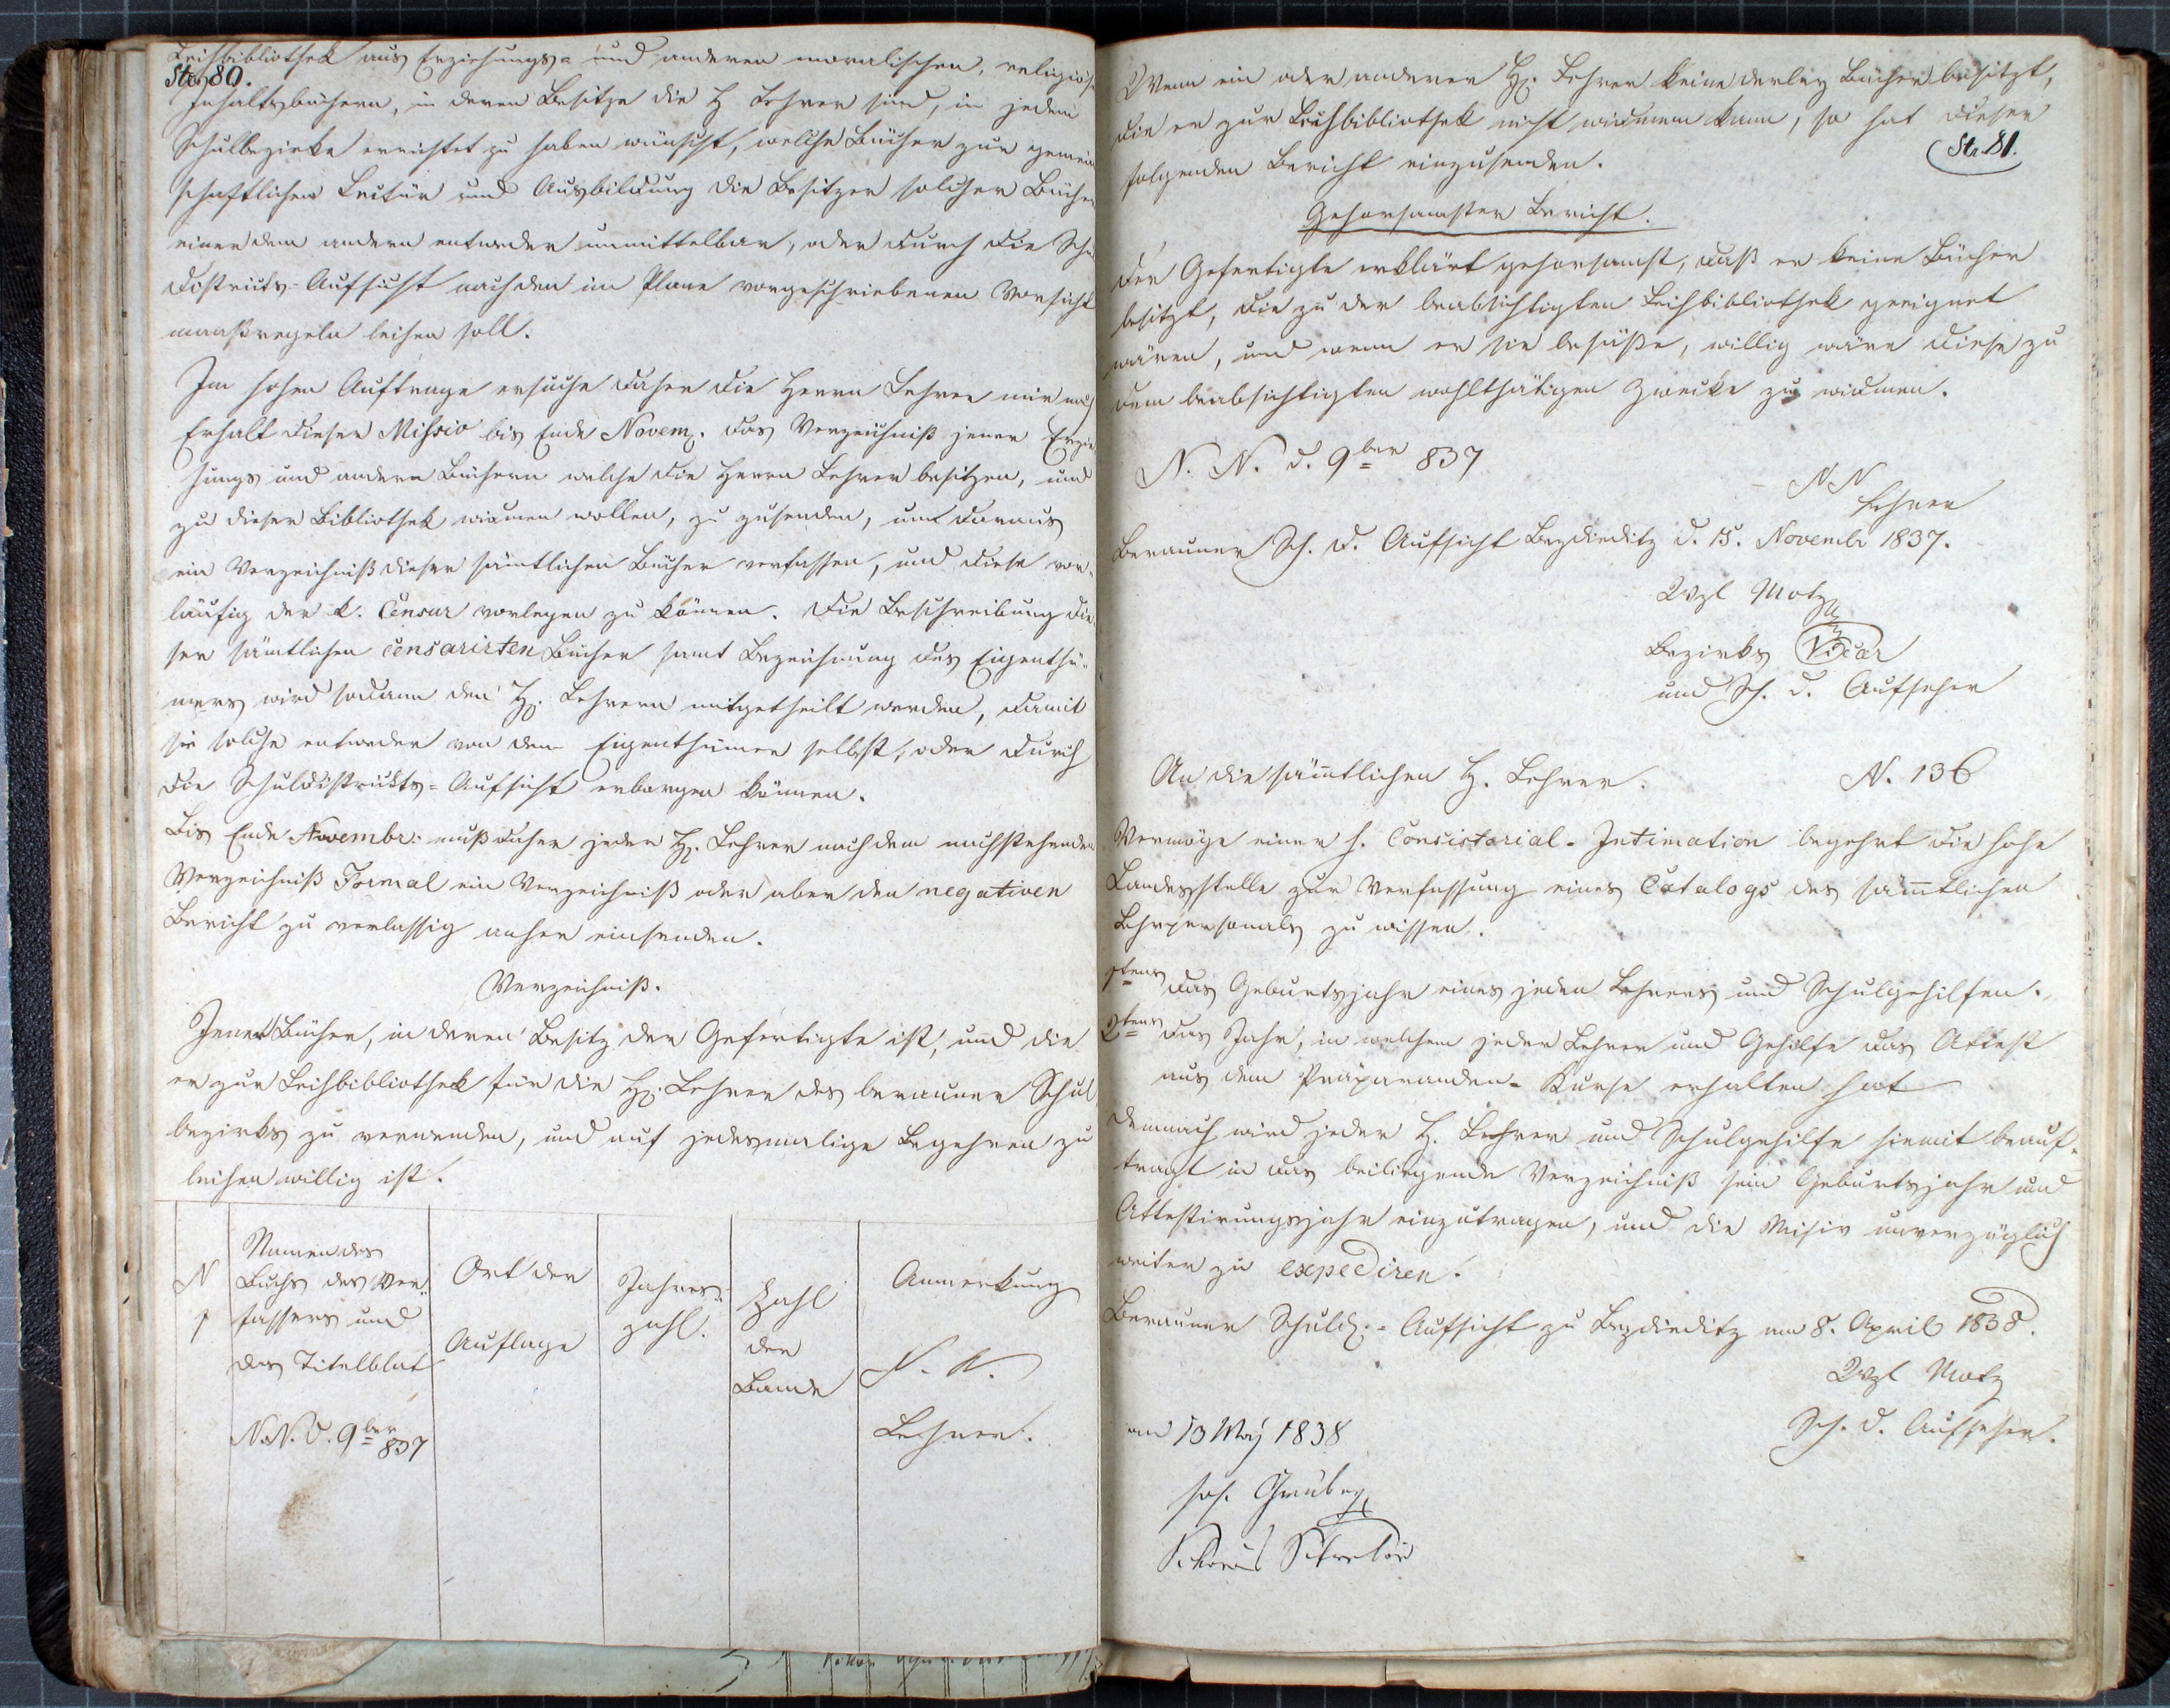 Leihbibliothek aus Erziehungs- und anderen moralischen, religiös
Str. 80.
Inhaltsbüchern, in deren Besitze die H Lehrer sind, in jedem
Schulbezirke errichtet zu haben wünscht, welche Bücher zur gemein
schaftlichen Lectür und Ausbildung die Besitzer solcher Bücher
einer dem andern entweder unmittelbar, oder durch die Schul
Districts-Aufsicht nach den im Plane vorgeschriebenen Vorsicht
maaßregeln leihen soll.
Im hohen Auftrage ersuche daher die Herrn Lehrer mir nach
Erhalt dieser Missiv bis Ende Novem. das Verzeichniß jener Erzie
hungs und andern Büchern welche die Herrn Lehrer besitzen, und
zu dieser Bibliothek widmen wollen, zu zusenden, um daraus
ein Verzeichniß dieser sämtlichen Bücher verfassen, und diese vor-
läufig der k. Censur vorlegen zu können. Die Beschreibung die-
ser sämtlichen censurirten Bücher samt Bezeichnung des Eigenthü-
mers wird sodann den H. Lehrern mitgetheilt werden, damit
sie solche entweder von dem Eigenthümer selbst, oder durch
die Schuldistrickts-Aufsicht erborgen können.
Bis Ende Novembr. muß daher jeder H. Lehrer nach dem nachstehenden
Verzeichniß Formal ein Verzeichniß oder aber den negativen
Bericht zu verlassig anher einsenden.
Verzeichniß.
Jener Bücher, in deren Besitz der Gefertigte ist, und die
er zur Leihbibliothek für die H. Lehrer des berauner Schul
bezirks zu verwenden, und auf jedesmalige Begehren zu
leihen willig ist.
N
1
Namen des
Buchs des Ver-
fassers und
das Titelblat
Ort der
Auflage
Jahres-
zahl.
Zahl
der
Bände
Anmerkung
N. N.
Lehrer.
N. N. d. 9ber 837
Wenn ein oder anderer H. Lehrer keine derley Bücher besitzt,
die er zur Leihbibliothek nicht widmen kann, so hat dieser
Str. 81.
folgenden Bericht einzusenden.
Gehorsamster Bericht.
Der Gefertigte erklärt gehorsamst, daß er keine Bücher
besitzt, die zu der beabsichtigten Leihbibliothek geeignet
wären, und wenn er sie besäße, willig wäre diese zu
dem beabsichtigten wohlthätigen Zwecke zu widmen.
N. N. d. 9ber 837
N N
Lehrer
Berauner Sch. D. Aufsicht Bezdieditz d. 15. Novembr 1837.
Wzl Motz
Bezirks Vicar
und Sch. D. Aufseher
An die sämtlichen H. Lehrer. N. 136
Vermöge einer h. Consistorial-Intimation begehrt die hohe
Landesstelle zur Verfassung eines Catalogs des sämtlichen
Lehrpersonals zu wissen.
1tens Das Geburtsjahr eines jeden Lehrers und Schulgehilfen.
2tens Das Jahr, in welchem jeder Lehrer und Gehilfe das Attest
aus dem Präparanden-Kurse erhalten hat
Demnach wird jeder H. Lehrer und Schulgehilfe hiemit beauf-
tragt in das beiliegende Verzeichniß sein Geburtsjahr und
Attestirungsjahr einzutragen, und die Misiv unverzüglich
weiter zu expediren.
Berauner Schuld.-Aufsicht zu Bezdieditz am 8. April 1838.
Wzl Motz
Sch. D. Aufseher.
am 13 Maj 1838
Jos. Grub